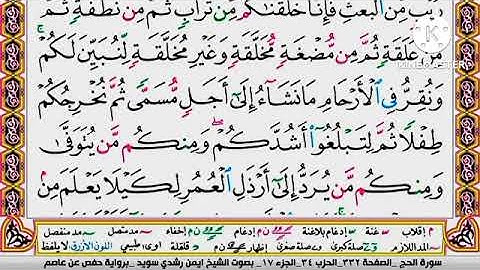 رَيۡبٖ مِّنَ ٱلۡبَعۡثِ فَإِنَّا خَلَقۡنَٰكُم مِّن تُرَابٖ ثُمَّ مِن نُّطۡفَةٖ ثُمَّ
مِنۡ عَلَقَةٖ ثُمَّ مِن مُّضۡغَةٖ مُّخَلَّقَةٖ وَغَيۡرِ مُخَلَّقَةٖ لِّنُبَيِّنَ لَكُمۡۚ
وَنُقِرُّ فِي ٱلۡأَرۡحَامِ مَا نَشَآءُ إِلَىٰٓ أَجَلٖ مُّسَمّٗى ثُمَّ نُخۡرِجُكُمۡ
طِفۡلٗا ثُمَّ لِتَبۡلُغُوٓاْ أَشُدَّكُمۡۖ وَمِنكُم مَّن يُتَوَفَّىٰ
وَمِنكُم مَّن يُرَدُّ إِلَىٰٓ أَرۡذَلِ ٱلۡعُمُرِ لِكَيۡلَا يَعۡلَمَ مِنۢ
م إقلاب ~ غنة ~ إدغام بلاغنة ~ إدغام ~ إخفاء ~ مد متصل ~ مد منفصل
~ المد اللازم ~ صلة كبرى ~ صلة صغرى إظهار ~ قلقلة ا و ى: طبيعي اللون الأزرق: لا يلفظ
سورة الحج _الصفحة ٣٣٢_ الحزب ٣٤_ الجزء ١٧_ بصوت الشيخ ايمن رشدي سويد _برواية حفص عن عاصم
K
KINEMASTER